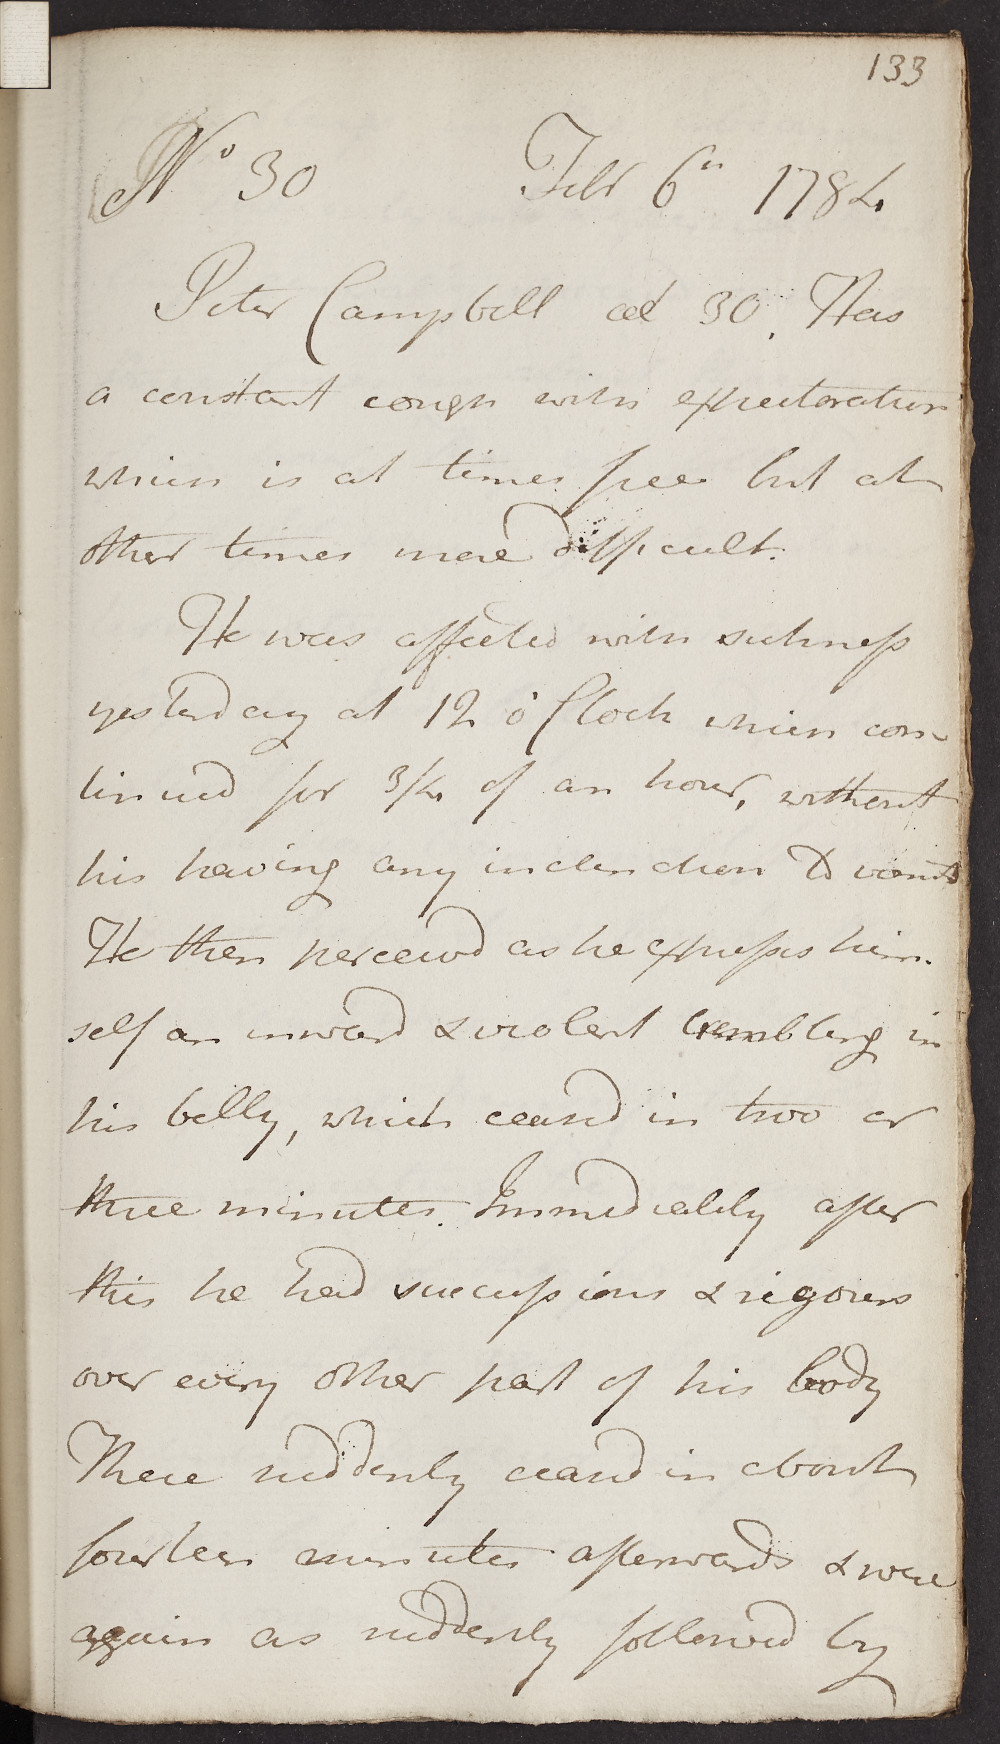 133
No 30 Febr 6th 1784
Peter Campbell aet 30. Has
a constant cough with expectoration
which is at times free but at
other times more difficult.
He was affected with sickness
yesterday at 12 o'Clock which con-
tinued for 3/4 of an hour, without
his having any inclination to vomit
He then perceived as he expresses him-
self an inward & violent trembling in
his belly, which ceased in two or
three minutes. Immediately after
this he had succussions & rigours
over every other part of his body
These suddenly ceased in about
fourteen minutes afterwards & were
again as suddenly followed by